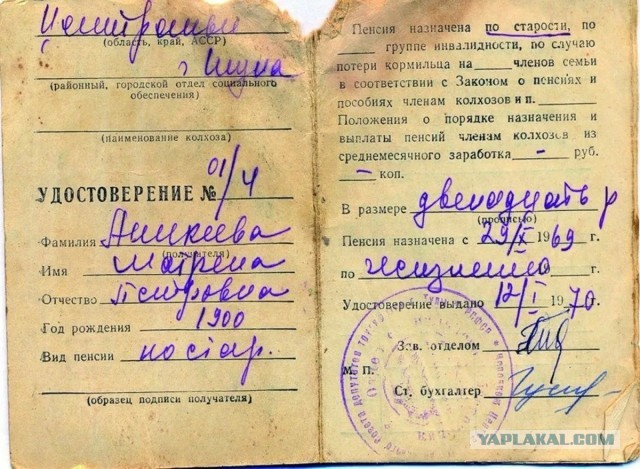 (область, край, АССР)
г
(районный, городской отдел социального
обеспечения)
(наименование колхоза)
УДОСТОВЕРЕНИЕ № 01/4
Фамилия Аникеева
(получателя)
Имя Матрена
Отчество Петровна
Год рождения 1900
Вид пенсии по стар.
(образец подписи получателя)
Пенсия назначена по старости, по
группе инвалидности, по случаю
потери кормильца на членов семьи
в соответствии с Законом о пенсиях и
пособиях членам колхозов и п.
Положения о порядке назначения и
выплаты пенсий членам колхозов из
среднемесячного заработка - руб.
- коп.
В размере двенадцать р
(прописью)
Пенсия назначена с 29/X 1969 г.
по жизненно 19 г.
Удостоверение выдано 12/I 1970 г.
Зав. отделом
М. П.
Ст. бухгалтер
YAPLAKAL.COM